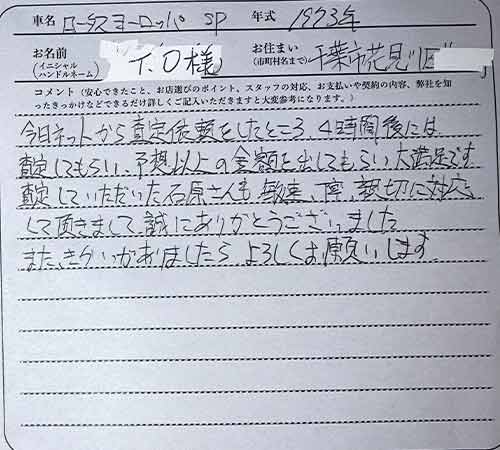 車名 ロータスヨーロッパ SP 年式 1973年
お名前 (イニシャル ハンドルネーム) (T.O様) お住まい (市町村名まで) 千葉市花見川区
コメント（安心できたこと、お店選びのポイント、スタッフの対応、お支払いや契約の内容、弊社を知
ったきっかけなどできるだけ詳しくご記入いただきますと大変参考になります。）
今日ネットから査定依頼をしたところ、4時間後には
査定してもらい、予想以上の金額を出してもらい大満足です
査定していただいた石原さんも 丁寧、親切に対応
して頂きまして、誠にありがとうございました
また、きかいがありましたら よろしくお願いします